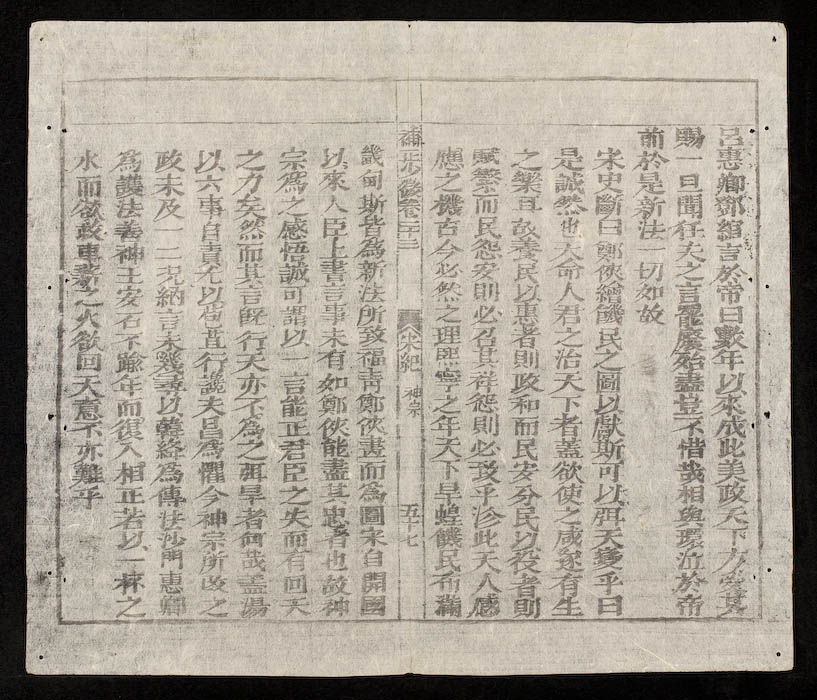 呂惠卿鄧綰言於帝曰數年以來成此美政天下方受其
賜一旦聞任夫之言罷廢殆盡豈不惜哉相與環泣於帝
前於是新法一切如故
宋史斷曰鄭俠繪饑民之圖以獻斯可以弭天變乎曰
是誠然也天命人君之治天下者蓋欲使之咸遂有生
之樂耳故養民以惠者則政和而民安分民以役者則
賦繁而民怨安則必召其祥怨則必致乎沴此天人感
應之機古今必然之理熙寧之年天下旱蝗饑民布滿
卷二十三
宋紀
神宗
五十七
畿甸斯皆為新法所致福清鄭俠畫而為圖宋自開國
以來人臣上書言事未有如鄭俠能盡其忠者也故神
宗為之感悟誠可謂以一言能正君臣之失而有回天
之力矣然而其言既行天亦不為之弭旱者何哉蓋湯
以六事自責尤以苞苴行讒夫昌為懼今神宗所改之
政未及一二況納言未幾遽以韓絳為傳法沙門惠卿
為護法善神王安石不踰年而復入相正若以一杯之
水而欲救車薪之火欲回天意不亦難乎